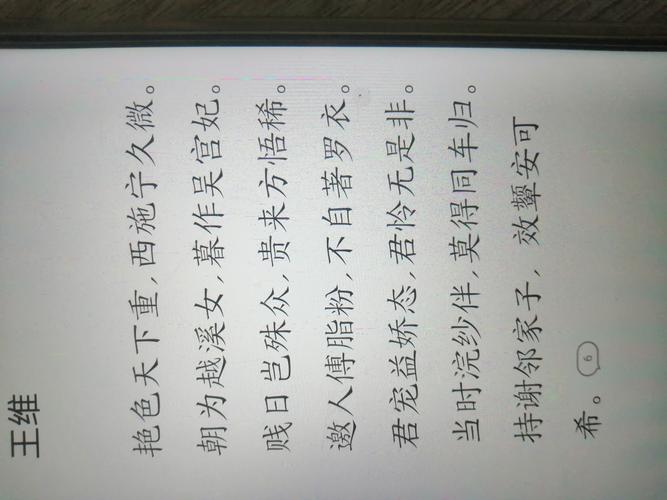 王维
艳色天下重，西施宁久微。
朝为越溪女，暮作吴宫妃。
贱日岂殊众，贵来方悟稀。
邀人傅脂粉，不自著罗衣。
君宠益娇态，君怜无是非。
当时浣纱伴，莫得同车归。
持谢邻家子，效颦安可
希。6